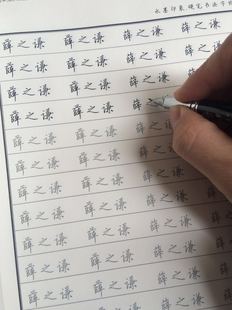 水墨印象.硬笔书法字
薛之谦 薛之谦 薛之谦 薛之谦
薛之谦 薛之谦 薛之谦 薛之谦
薛之谦 薛之谦 薛之谦 薛之谦
薛之谦 薛之谦 薛之
薛之谦 薛之谦 薛之谦
薛之谦 薛之谦 薛之谦
薛之谦 薛之谦 薛之谦 薛之谦
薛之谦 薛之谦 薛之谦 薛之谦
薛之谦 薛之谦 薛之谦 薛之谦
薛之谦 薛之谦 薛之谦 薛之谦
薛之谦 薛之谦 薛之谦 薛之谦